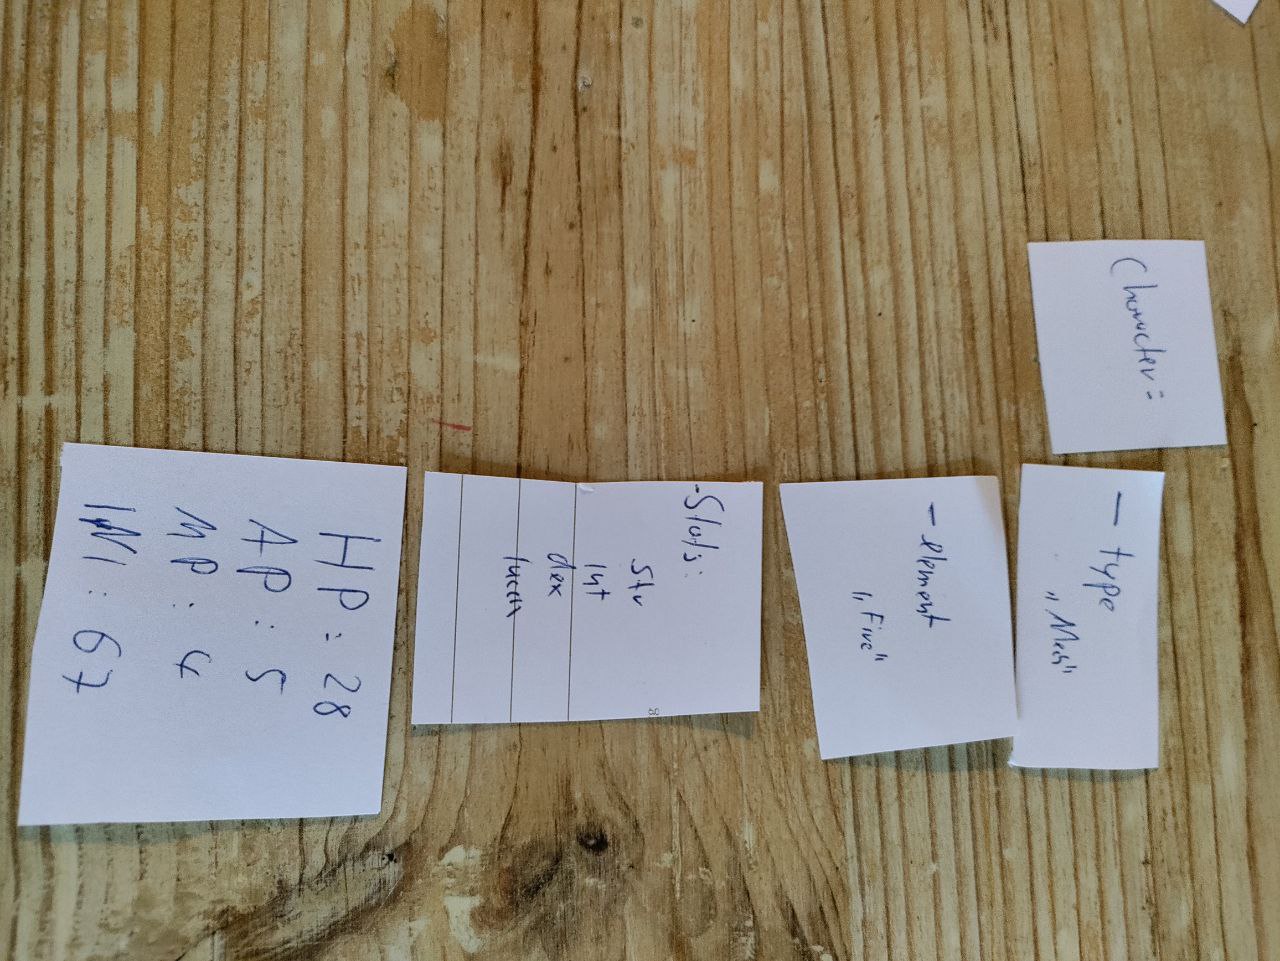 Character:
- type
„Mech"
- element
„Fire"
- Stats:
Str
int
dex
HP: 28
AP: 5
MP: 4
INI: 67